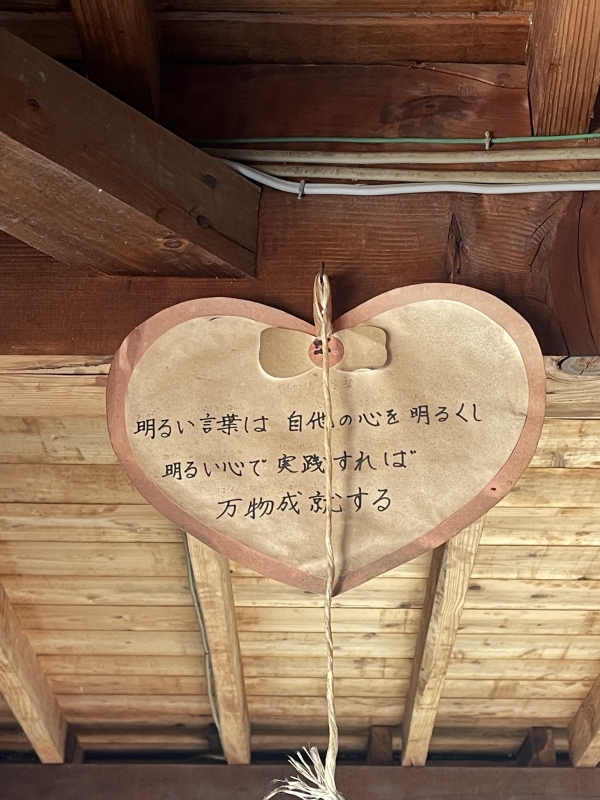 明るい言葉は 自他の心を 明るくし
明るい心で 実践すれば
万物成就する